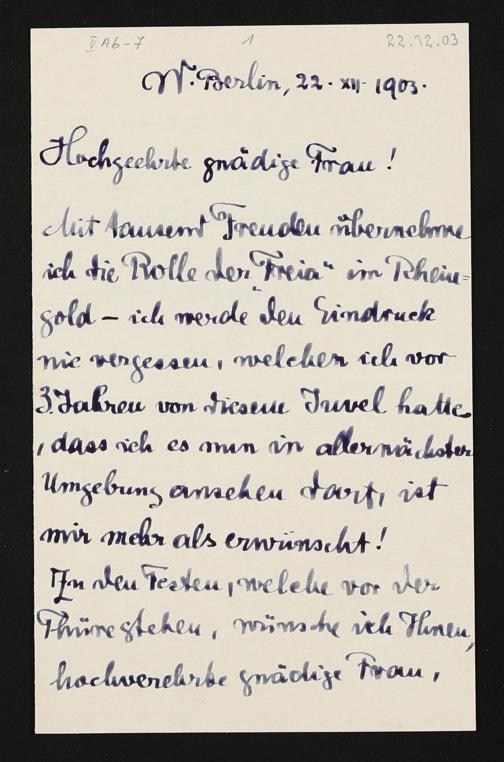 V Ab-7 1 22.12.03
W. Berlin, 22. XII. 1903.
Hochgeehrte gnädige Frau!
Mit tausend Freuden übernehme
ich die Rolle der "Freia" im Rhein=
gold – ich werde den Eindruck
nie vergessen, welchen ich vor
3 Jahren von diesem Juvel hatte
, dass ich es nun in allernächster
Umgebung ansehen darf, ist
mir mehr als erwünscht!
Zu den Festen, welche vor der
Thüre stehen, wünsche ich Ihnen,
hochverehrte gnädige Frau,